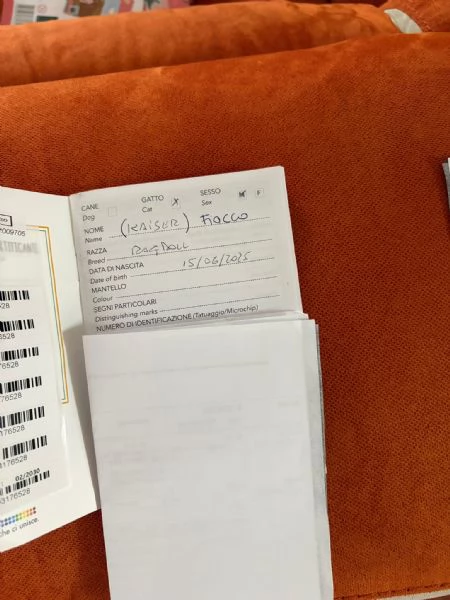 7009705
3176528
3176528
3176528
3176528
3176528
3176528
02/2030
3176528
che ci unisce.
CANE
Dog
GATTO
Cat
X
SESSO
Sex
M
F
NOME
Name
(KAISER) FIOCCO
RAZZA
Breed
RAGDOLL
DATA DI NASCITA
Date of birth
15/06/2025
MANTELLO
Colour
SEGNI PARTICOLARI
Distinguishing marks
NUMERO DI IDENTIFICAZIONE (Tatuaggio/Microchip)